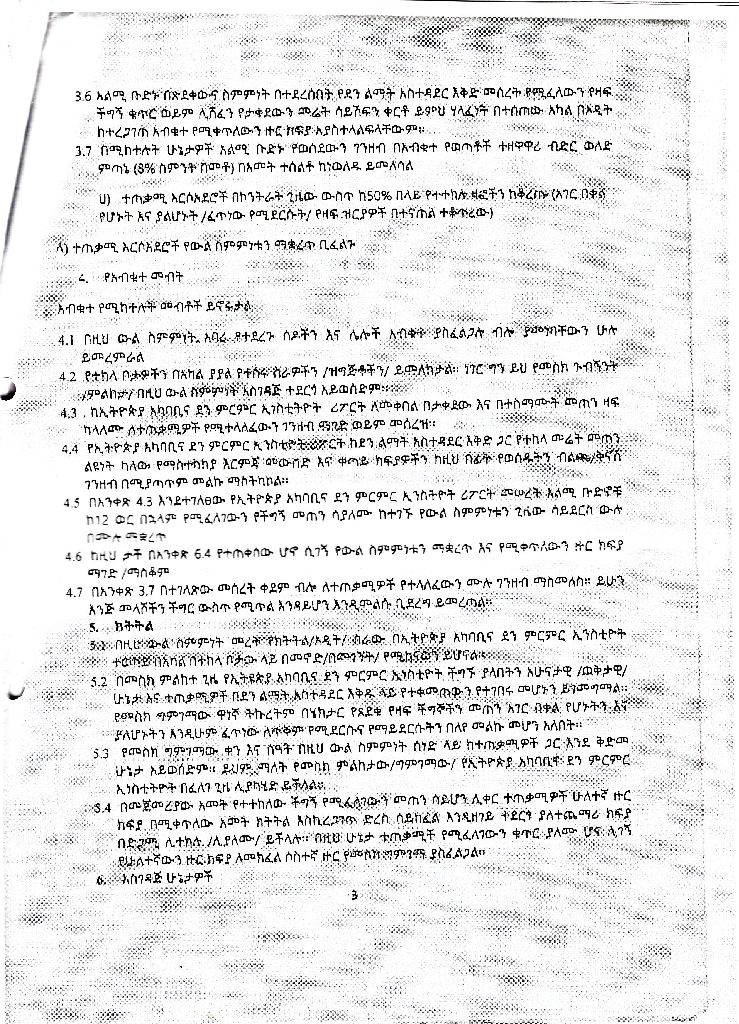 3.6 አልሚ ቡድኑ በጽደቀውና ስምምነት በተደረሰበት የደን ልማት አስተዳደር እቅድ መሰረት የሚፈለገውን የዛፍ
ችግኝ ቁጥር ወይም ሊሸፈን የታቀደውን መሬት ሳይሸፍን ቀርቶ ይምህ ሃላፊነት በተሰጠው አካል በኦዲት
ከተረጋገጠ አብቁተ የሚቀጥለውን ዙር ክፍያ አያስተላልፍላቸውም።
3.7 በሚከተሉት ሁኔታዎች አልሚ ቡድኑ የወሰደውን ገንዘብ በአብቁተ የወጣቶች ተዘዋዋሪ ብድር ወለድ
ምጣኔ (8% ስምንት በመቶ) በአመት ተሰልቶ ከነወለዱ ይመለሳል
ሀ) ተጠቃሚ አርሶአደሮች በኮንትራት ጊዜው ውስጥ ከ50% በላይ የተተከሉ ዛፎችን ከቆረጡ (አገር በቀል
የሆኑት እና ያልሆኑት /ፈጥነው የሚደርሱት/ የዛፍ ዝርያዎች በተናጠል ተቆጥረው)
ለ) ተጠቃሚ አርሶአደሮች የውል ስምምነቱን ማቋረጥ ቢፈልጉ
4. የአብቁተ መብት
አብቁተ የሚከተሉት መብቶች ይኖሩታል
4.1 በዚህ ውል ስምምነት አባሪ የተደረጉ ሰዶችን እና ሌሎች አብቁተ ያስፈልጋሉ ብሎ ያመነባቸውን ሁሉ
ይመረምራል
4.2 የተከላ ቦታዎችን በአካል ያያል የተሰሩ ስራዎችን /ዝግጅቶችን/ ይመለከታል። ነገር ግን ይህ የመስክ ጉብኝንት
/ምልከታ/ በዚህ ውል ስምምነት አስገዳጅ ተደርጎ አይወሰድም።
4.3 ከኢትዮጵያ አካባቢና ደን ምርምር ኢንስቲትዮት ሪፖርት ለመቀበል በታቀደው እና በተስማሙት መጠን ዛፍ
ካላለሙ ለተጠቃሚዎች የሚተላለፈውን ገንዘብ ማገድ ወይም መሰረዝ።
4.4 የኢትዮጵያ አካባቢና ደን ምርምር ኢንስቲትዮት ሪፖርት ከደን ልማት አስተዳደር እቅድ ጋር የተከላ መሬት መጠን
ልዩነት ካለው የማስተካከያ እርምጃ መውሰድ እና ቀጣይ ክፍያዎችን ከዚህ በፊት የወሰዱትን ብልጫ/ቅናሽ
ገንዘብ በሚያጣጥም መልኩ ማስተካከል።
4.5 በአንቀጽ 4.3 እንደተገለፀው የኢትዮጵያ አካባቢና ደን ምርምር ኢንስትዮት ሪፖርት መሠረት አልሚ ቡድኖቹ
ከ12 ወር በኋላም የሚፈለገውን የችግኝ መጠን ሳያለሙ ከተገኙ የውል ስምምነቱን ጊዜው ሳይደርስ ውሉ
በሙሉ ማቋረጥ
4.6 ከዚህ ታች በአንቀጽ 6.4 የተጠቀሰው ሆኖ ሲገኝ የውል ስምምነቱን ማቋረጥ እና የሚቀጥለውን ዙር ክፍያ
ማገድ /ማስቆም
4.7 በአንቀጽ 3.7 በተገለጽው መሰረት ቀደም ብሎ ለተጠቃሚዎች የተላለፈውን ሙሉ ገንዘብ ማስመለስ። ይሁን
እንጅ መላሾችን ችግር ውስጥ የሚጥል እንዳይሆን እንዲመልሱ ቢደረግ ይመረጣል።
5. ክትትል
5.1 በዚህ ውል ስምምነት መረት የክትትል/ኦዲት/ ስራው በኢትዮጵያ አካባቢና ደን ምርምር ኢንስቲዮት
ተወካይ በአካል በተከላ ቦታው ላይ በመኖድ/በመገኝት/ የሚከናወን ይሆናል።
5.2 በመስክ ምልከተ ጊዜ የኢትዩጵያ አካባቢና ደን ምርምር ኢንስቲዮት ችግኙ ያለበትን አሁናታዊ /ወቅታዊ/
ሁኔታ እና ተጠቃሚዎች በደን ልማት አስተዳደር እቅዱ ላይ የተቀመጠውን የተገበሩ መሆኑን ይገመግማል።
የመስክ ግምገማው ዋነኛ ትኩረትም በሄክታር የጸደቁ የዛፍ ችግኞችን መጠን አገር በቀል የሆኑትን እና
ያልሆኑትን እንዲሁም ፈጥነው ለጥቅም የሚደርሱና የማይደርሱትን በለየ መልኩ መሆን አለበት።
5.3 የመስክ ግምገማው ቀን እና ሰዓት በዚህ ውል ስምምነት ሰነድ ላይ ከተጠቃሚዎች ጋር እንደ ቅድመ
ሁኔታ አይወሰድም። ይህም ማለት የመስክ ምልከታው/ግምገማው/ የኢትዮጵያ አካባቢዋ ደን ምርምር
ኢንስቲትዮት በፈለገ ጊዜ ሊያካሂድ ይችላል።
5.4 በመጀመሪያው አመት የተተከለው ችግኝ የሚፈለገውን መጠን ሳይሆን ሊቀር ተጠቃሚዎች ሁለተኛ ዙር
ክፍያ በሚቀጥለው አመት ክትትል እስኪረጋገጥ ድረስ ሳይከፈል እንዲዘገይ ተደርጎ ያለተጨማሪ ክፍያ
በድጋሚ ሊተክሉ /ሊያለሙ/ ይችላሉ። በዚህ ሁኔታ ተጠቃሚች የሚፈለገውን ቁጥር ያለሙ ሆኖ ሊገኝ
ይሁለተኛውን ዙር ክፍያ ለመክፈል ሶስተኛ ዙር የመስክ ግምገማ ያስፈልጋል።
6. አስገዳጅ ሁኔታዎች
3